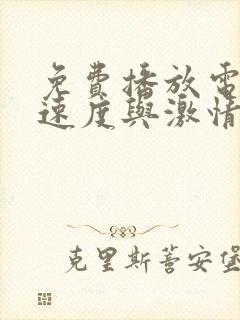 免費播放電
速度與激情
克里斯蒂安堡